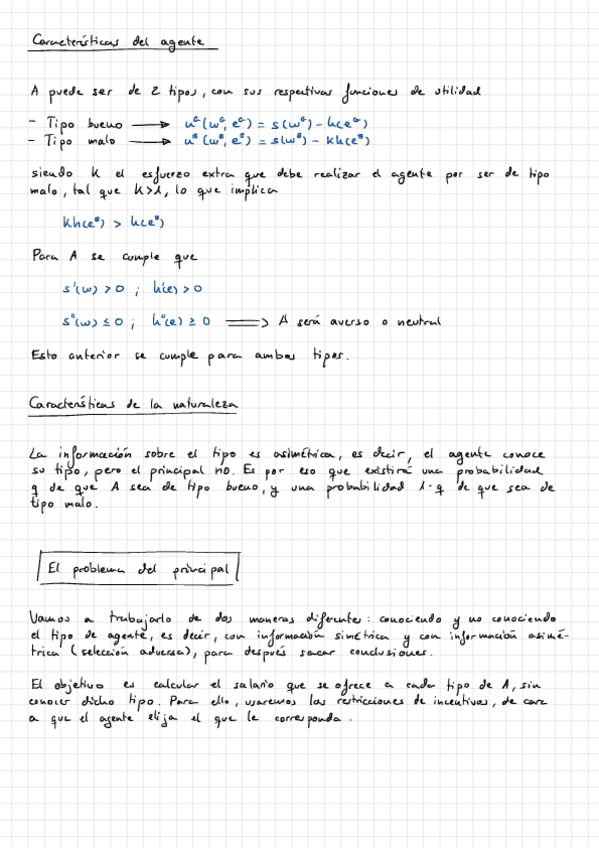 Características del agente
A puede ser de 2 tipos, con sus respectivas funciones de utilidad
- Tipo bueno ⟶ u^G(w^G, e^G) = s(w^G) - h(e^G)
- Tipo malo ⟶ u^B(w^B, e^B) = s(w^B) - kh(e^B)
siendo K el esfuerzo extra que debe realizar el agente por ser de tipo
malo, tal que K>1, lo que implica
kh(e^B) > h(e^B)
Para A se cumple que
s'(w) > 0 ; h'(e) > 0
s''(w) ≤ 0 ; h''(e) ≥ 0 ⟹ A será averso o neutral
Esto anterior se cumple para ambos tipos.
Características de la naturaleza
La información sobre el tipo es asimétrica, es decir, el agente conoce
su tipo, pero el principal no. Es por eso que existirá una probabilidad
q de que A sea de tipo bueno, y una probabilidad 1-q de que sea de
tipo malo.
El problema del principal
Vamos a trabajarlo de dos maneras diferentes: conociendo y no conociendo
el tipo de agente, es decir, con información simétrica y con información asimé-
trica (selección adversa), para después sacar conclusiones.
El objetivo es calcular el salario que se ofrece a cada tipo de A, sin
conocer dicho tipo. Para ello, usaremos las restricciones de incentivos, de cara
a que el agente elija el que le corresponda.